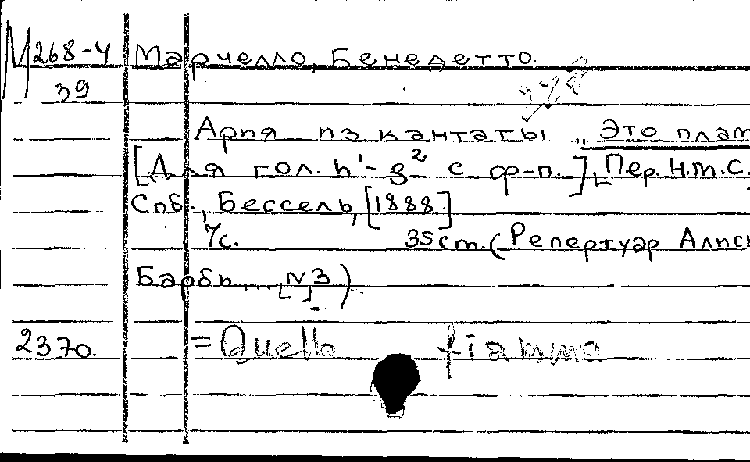 М268-4 Марчелло, Бенедетто.
39
Ария из кантаты „Это плам
[Для гол. h¹-g² с ф-п.], Пер. Н.М.С.
Спб., Бессель, [1888.]
7с. 35см. (Репертуар Алис
Барби, №3)
2370. = Quella fiamma